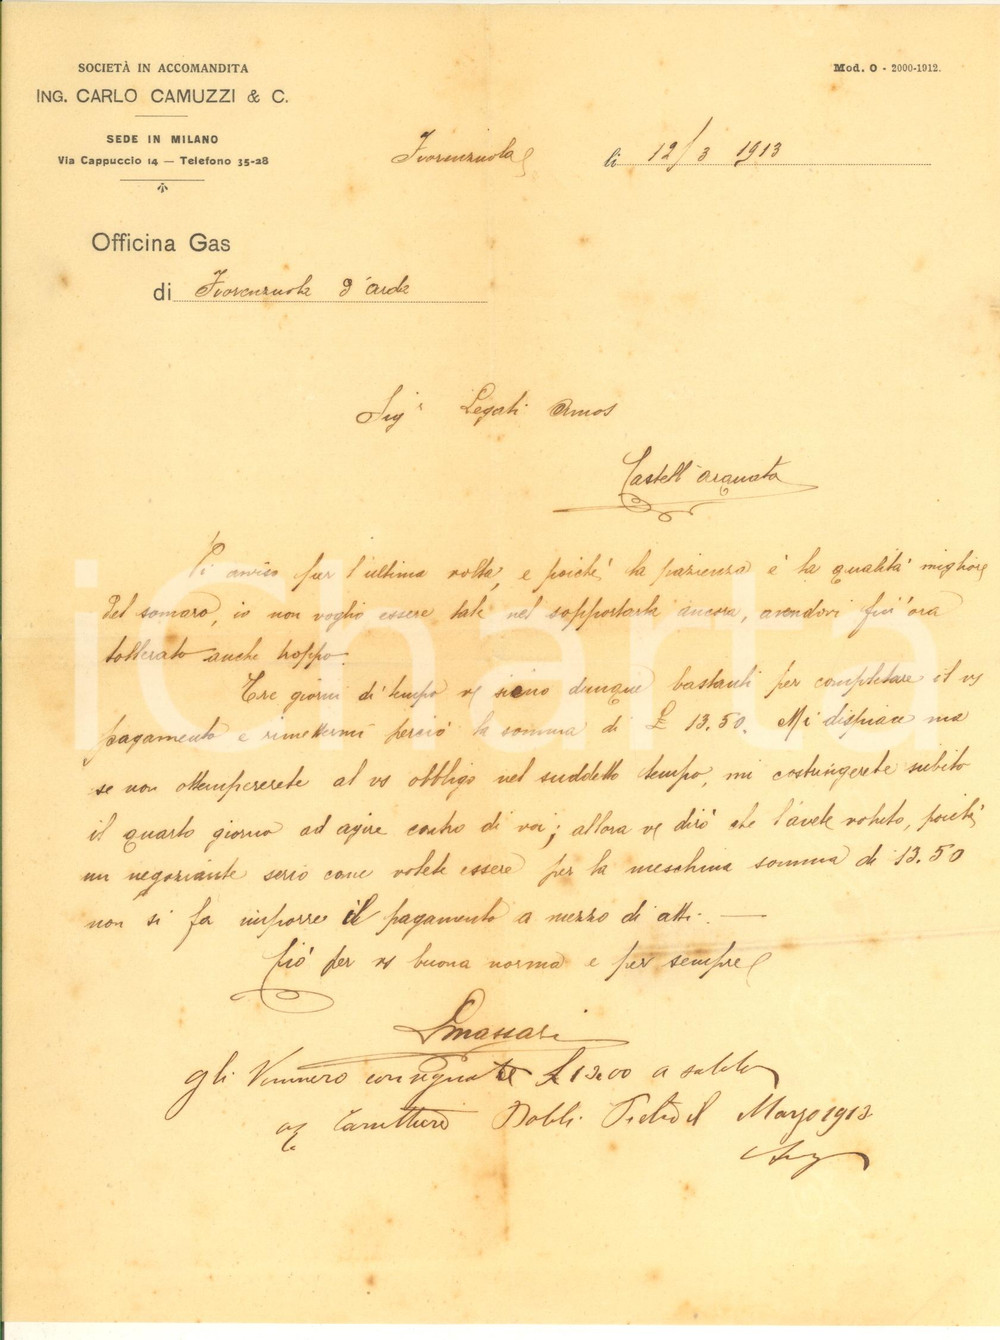 SOCIETÀ IN ACCOMANDITA
ING. CARLO CAMUZZI & C.
SEDE IN MILANO
Via Cappuccio 14 — Telefono 35-28
Mod. O - 2000-1912.
Fiorenzuola li 12/3 1913
Officina Gas
di Fiorenzuola d'Arda
Sigr Legati Amos
Castell'arquato
Vi avviso per l'ultima volta, e poichè la pazienza è la qualità migliore
del somaro, io non voglio essere tale nel sopportarla ancora, avendovi fin'ora
tollerato anche troppo.
Tre giorni di tempo ve sieno dunque bastanti per completare il vs
pagamento e rimettermi perciò la somma di £ 13.50. Mi dispiace ma
se non ottempererete al vs obbligo nel suddetto tempo, mi costringerete subito
il quarto giorno ad agire contro di voi; allora ve dirò che l'avete voluto, poichè
un negoziante serio come volete essere per la meschina somma di 13.50
non si fa imporre il pagamento a mezzo di atti. —
Ciò per vs buona norma e per sempre
Massari
gli Vennero consegnate £ 13.00 a saldo
Dobli Marzo 1913